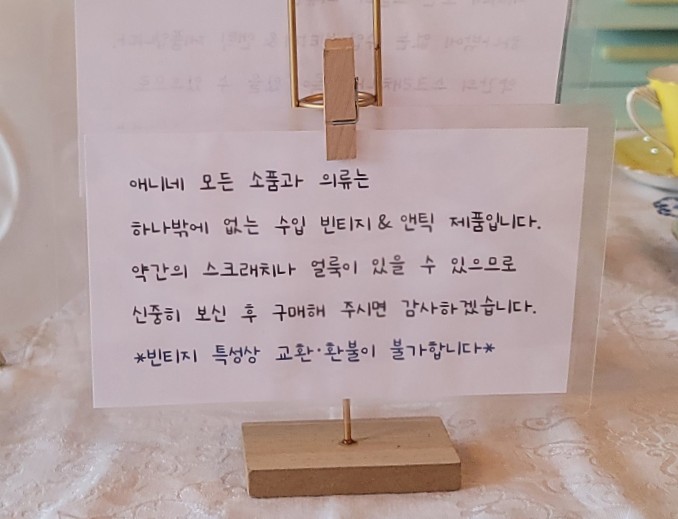 애니네 모든 소품과 의류는
하나밖에 없는 수입 빈티지 & 앤틱 제품입니다.
약간의 스크래치나 얼룩이 있을 수 있으므로
신중히 보신 후 구매해 주시면 감사하겠습니다.
*빈티지 특성상 교환·환불이 불가합니다*